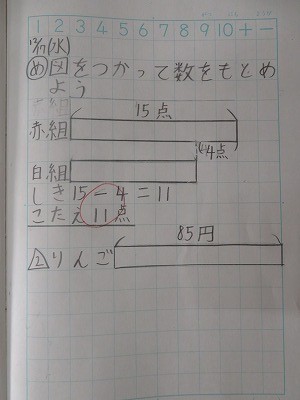 1 2 3 4 5 6 7 8 9 10 + −
12/17(水)
め 図をつかって数をもとめ
よう
15点
赤組
4点
白組
しき 15-4=11
こたえ 11点
2 りんご
85円